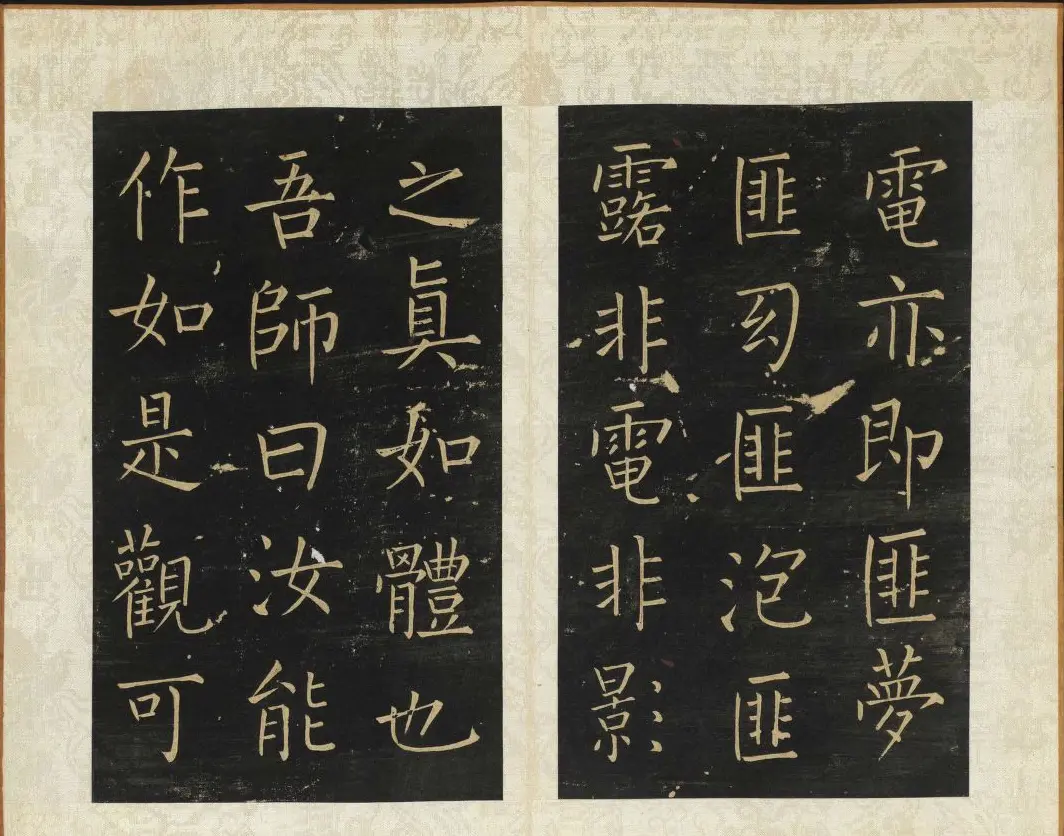 電亦即匪夢
匪幻匪泡匪
露非電非影
之真如體也
吾師曰汝能
作如是觀可